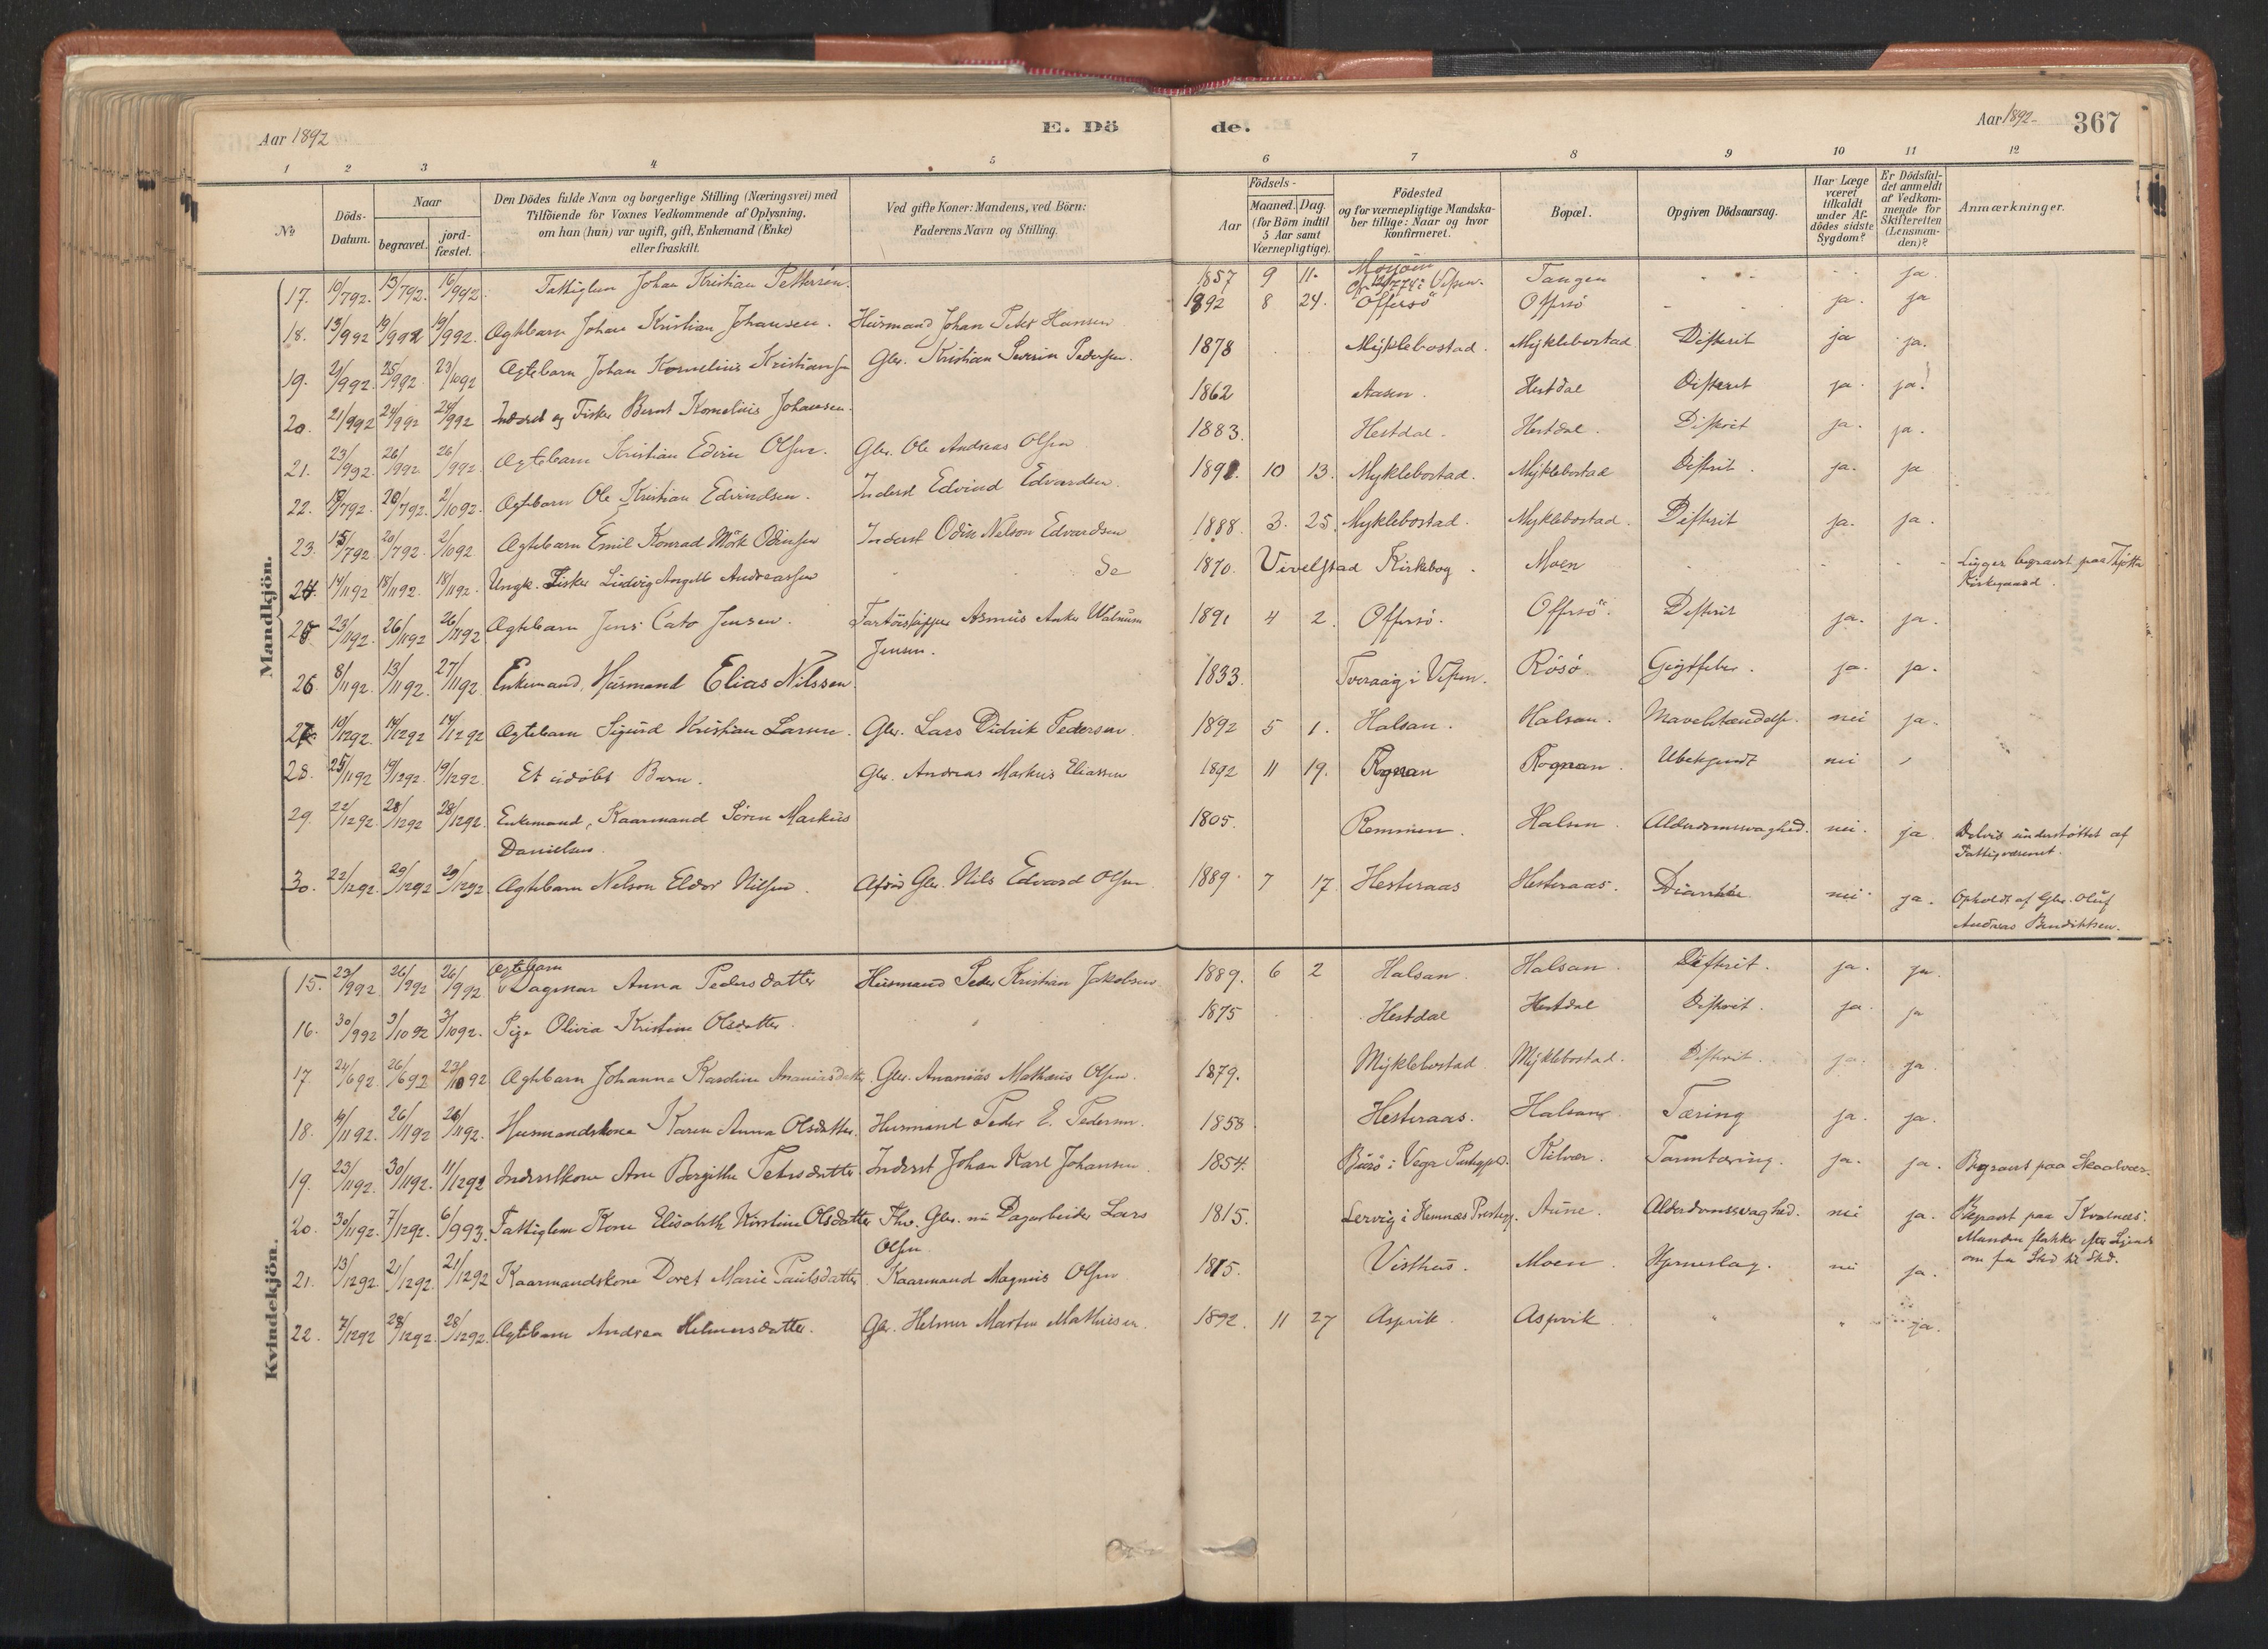 Aar 1892
E. Dö
de.
Aar 1892-
367
1 2 3 4 5 6 7 8 9 10 11 12
No
Döds-Datum.
Naar
begravet.
jord-fæstet.
Den Dödes fulde Navn og borgerlige Stilling (Næringsvei) med
Tilföiende for Voxnes Vedkommende af Oplysning,
om han (hun) var ugift, gift, Enkemand (Enke)
eller fraskilt.
Ved gifte Koner: Mandens, ved Börn:
Faderens Navn og Stilling.
Födsels-
Aar
Maaned. Dag.
(for Börn indtil
5 Aar samt
Værnepligtige).
Födested
og for værnepligtige Mandska-
ber tillige: Naar og hvor
konfirmeret.
Bopæl.
Opgiven Dödsaarsag.
Har Læge
været
tilkaldt
under Af-
dödes sidste
Sygdom?
Er Dödsfal-
det anmeldt
af Vedkom-
mende for
Skifteretten
(Lensman-
den)?
Anmærkninger.
Mandkjön.
17. 10/792. 13/792. 16/992. Fattiglem Johan Kristian Pettersen. 1857 9 11. Mosjöen Tangen ja.
18. 13/992 19/992 19/992. Ægtebarn Johan Kristian Johansen. Husmand Johan Peter Hansen 1892 8 24. Offersö Offersö ja. ja
19. 21/992. 25/992 23/1092 Ægtebarn Johan Kornelius Kristiansen Gbr. Kristian Severin Pedersen. 1878 Myklebostad. Myklebostad Difterit ja ja.
20. 21/992 24/992 24/992 Inderst og Fisker Bernt Kornelius Johansen. 1862 Aasen. Hestdal Difterit ja. ja.
21. 23/992. 26/992. 26/992. Ægtebarn Kristian Edvin Olsen. Gbr. Ole Andreas Olsen 1883. Hestdal. Hestdal. Difterit ja. ja.
22. 18/792. 20/792. 2/1092. Ægtebarn Ole Kristian Edvindsen. Inderst Edvind Edvardsen. 1891. 10 13. Myklebostad. Myklebostad Difterit. ja. ja
23. 15/792 20/792. 2/1092 Ægtebarn Emil Konrad Mörk Odinsen Inderst Odin Nelson Edvardsen 1888. 3. 25. Myklebostad. Myklebostad. Difterit ja. ja.
24. 14/1192 18/1192. 18/1192. Ungk. Fisker Ludvig Angell Andreassen Se 1870. Vivelstad Kirkebog. Moen Ligger begravet paa Tjötta
Kirkegaard.
25. 23/1192. 26/1192 26/1192 Ægtebarn Jens Cato Jensen. Fartöiskipper Asmus Anker Walnum
Jensen. 1891 4 2. Offersö. Offersö. Difterit ja. ja.
26. 8/1192. 13/1192. 27/1192 Enkemand, Husmand Elias Nilssen. 1833. Tveraag i Vefsen. Rösö. Gigtfeber. ja. ja.
27. 10/1292. 14/1292 14/1292 Ægtebarn Sigurd Kristian Larsen. Gbr. Lars Didrik Pedersen 1892 5 1. Halsan. Halsan. Mavebetændelse. nei ja.
28. 25/1192 19/1292. 19/1292. Et udöbt Barn. Gbr. Andreas Markus Eliassen 1892 11 19. Rognan Rognan. Ubekjendt nei
29. 22/1292. 28/1292 28/1292. Enkemand, Kaarmand Sören Markus
Danielsen. 1805. Remmen. Halsen. Alderdomssvaghed. nei. ja. Delvis understöttet af
Fattigvæsenet.
30. 22/1292. 29/1292 29/1292 Ægtebarn Nelson Eldor Nilsen. Afdöd Gbr. Nils Edvard Olsen 1889. 7 17. Hesteraas Hesteraas. Diarrhe nei ja. Opholdt af Gbr. Oluf
Andreas Bendiktsen.
Kvindekjön.
15. 23/992 26/992 26/992 Ægtebarn
Dagmar Anna Pedersdatter Husmand Peder Kristian Jakobsen. 1889. 6 2 Halsan. Halsan. Difterit. ja. ja.
16. 30/992 3/1092 3/1092. Pige Olivia Kristine Olsdatter. 1875 Hestdal Hestdal Difterit. ja. ja
17. 24/692. 26/692 23/1092 Ægtebarn Johanna Karoline Ananiasdatter. Gbr. Ananias Mathæus Olsen. 1879. Myklebostad Myklebostad. Difterit. ja. ja.
18. 19/1192. 26/1192 26/1192. Husmandskone Karen Anna Olsdatter. Husmand Peder E. Pedersen. 1858 Hesteraas. Halsan. Tæring ja. ja.
19. 23/1192. 30/1192. 11/1292 Inderstkone Ane Bergitte Petersdatter Inderst Johan Karl Johansen. 1854. Burö i Vega Prestegjeld. Kilvær. Tarmtæring. ja. ja. Begravet paa Skaalvær.
20. 30/1192. 7/1292. 6/993. Fattiglem Kone Elisabeth Kirstine Olsdatter Fhv. Gbr. nu Dagarbeider Lars
Olsen. 1815. Lervig i Hemnæs Prestegj. Aune. Alderdomssvaghed. nei ja. Begravet paa Kvalnæs.
Manden flakker
om fra Sted til Sted.
21. 13/1292. 21/1292. 21/1292 Kaarmandskone Doret Marie Paulsdatter. Kaarmand Magnus Olsen 1815. Visthus. Moen. Hjerneslag. nei ja.
22. 7/1292 28/1292. 28/1292. Ægtebarn Andrea Helmersdatter. Gbr. Helmer Martin Mathiesen. 1892. 11 27 Aspvik. Aspvik. ja.